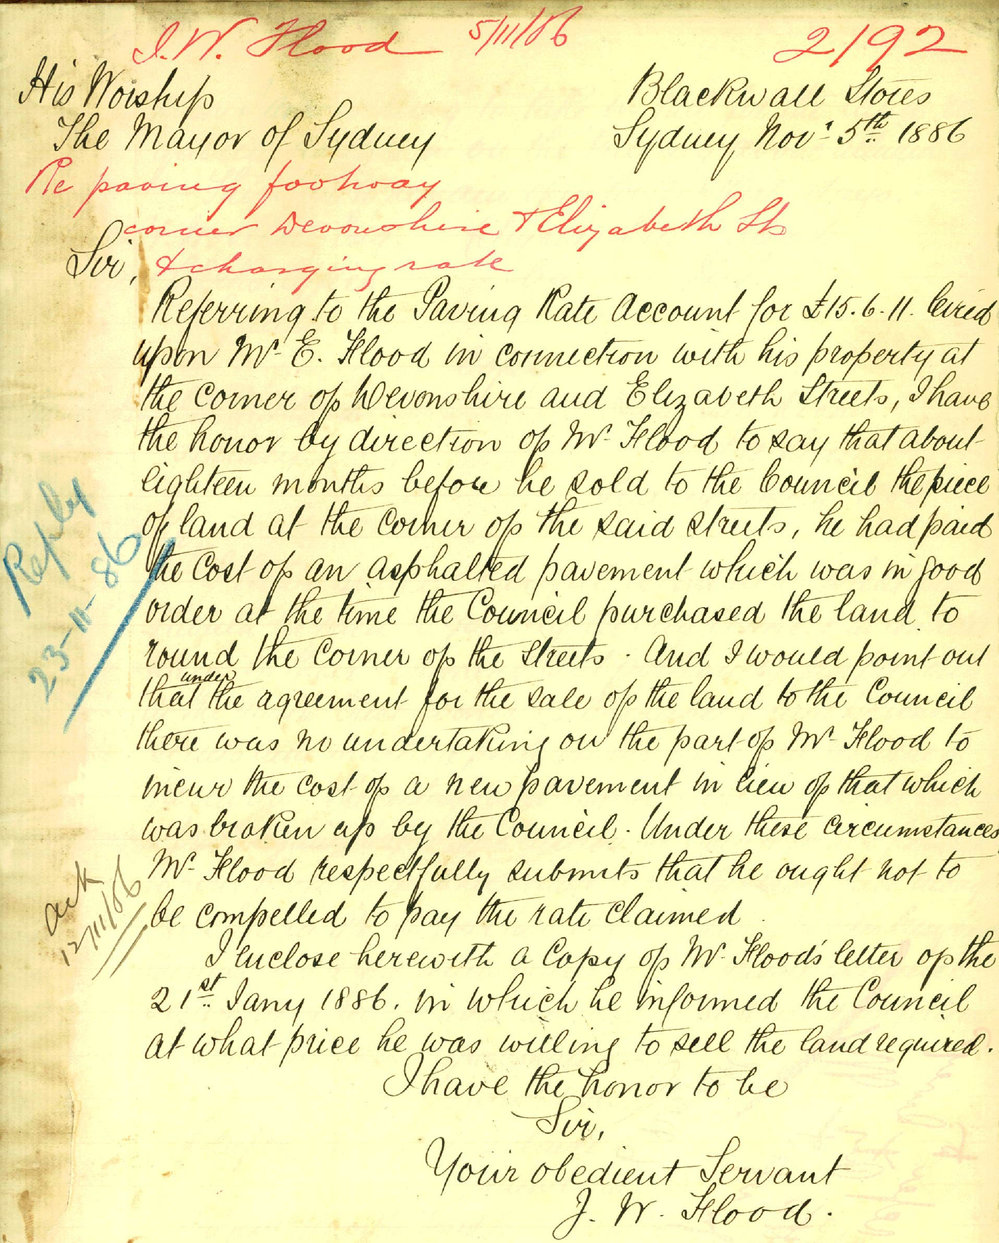 J. W. Flood 5/11/86 2192
His Worship
The Mayor of Sydney
Blackwall Stores
Sydney Novr. 5th 1886
Re paving footway
corner Devonshire & Elizabeth Sts
& charging rate
Sir,
Referring to the Paving Rate Account for £15.6.11. levied
upon Mr. E. Flood in connection with his property at
the corner of Devonshire and Elizabeth Streets, I have
the honor by direction of Mr. Flood to say that about
eighteen months before he sold to the Council the piece
of land at the corner of the said streets, he had paid
the cost of an asphalted pavement which was in good
order at the time the Council purchased the land to
round the corner of the streets. And I would point out
that under the agreement for the sale of the land to the Council
there was no undertaking on the part of Mr. Flood to
incur the cost of a new pavement in lieu of that which
was broken up by the Council. Under these circumstances
Mr. Flood respectfully submits that he ought not to
be compelled to pay the rate claimed.
I enclose herewith a copy of Mr. Flood's letter of the
21st Jany 1886. in which he informed the Council
at what price he was willing to sell the land required.
I have the honor to be
Sir,
Your obedient Servant
J. W. Flood.
Reply
23-11-86
ack
12/11/86